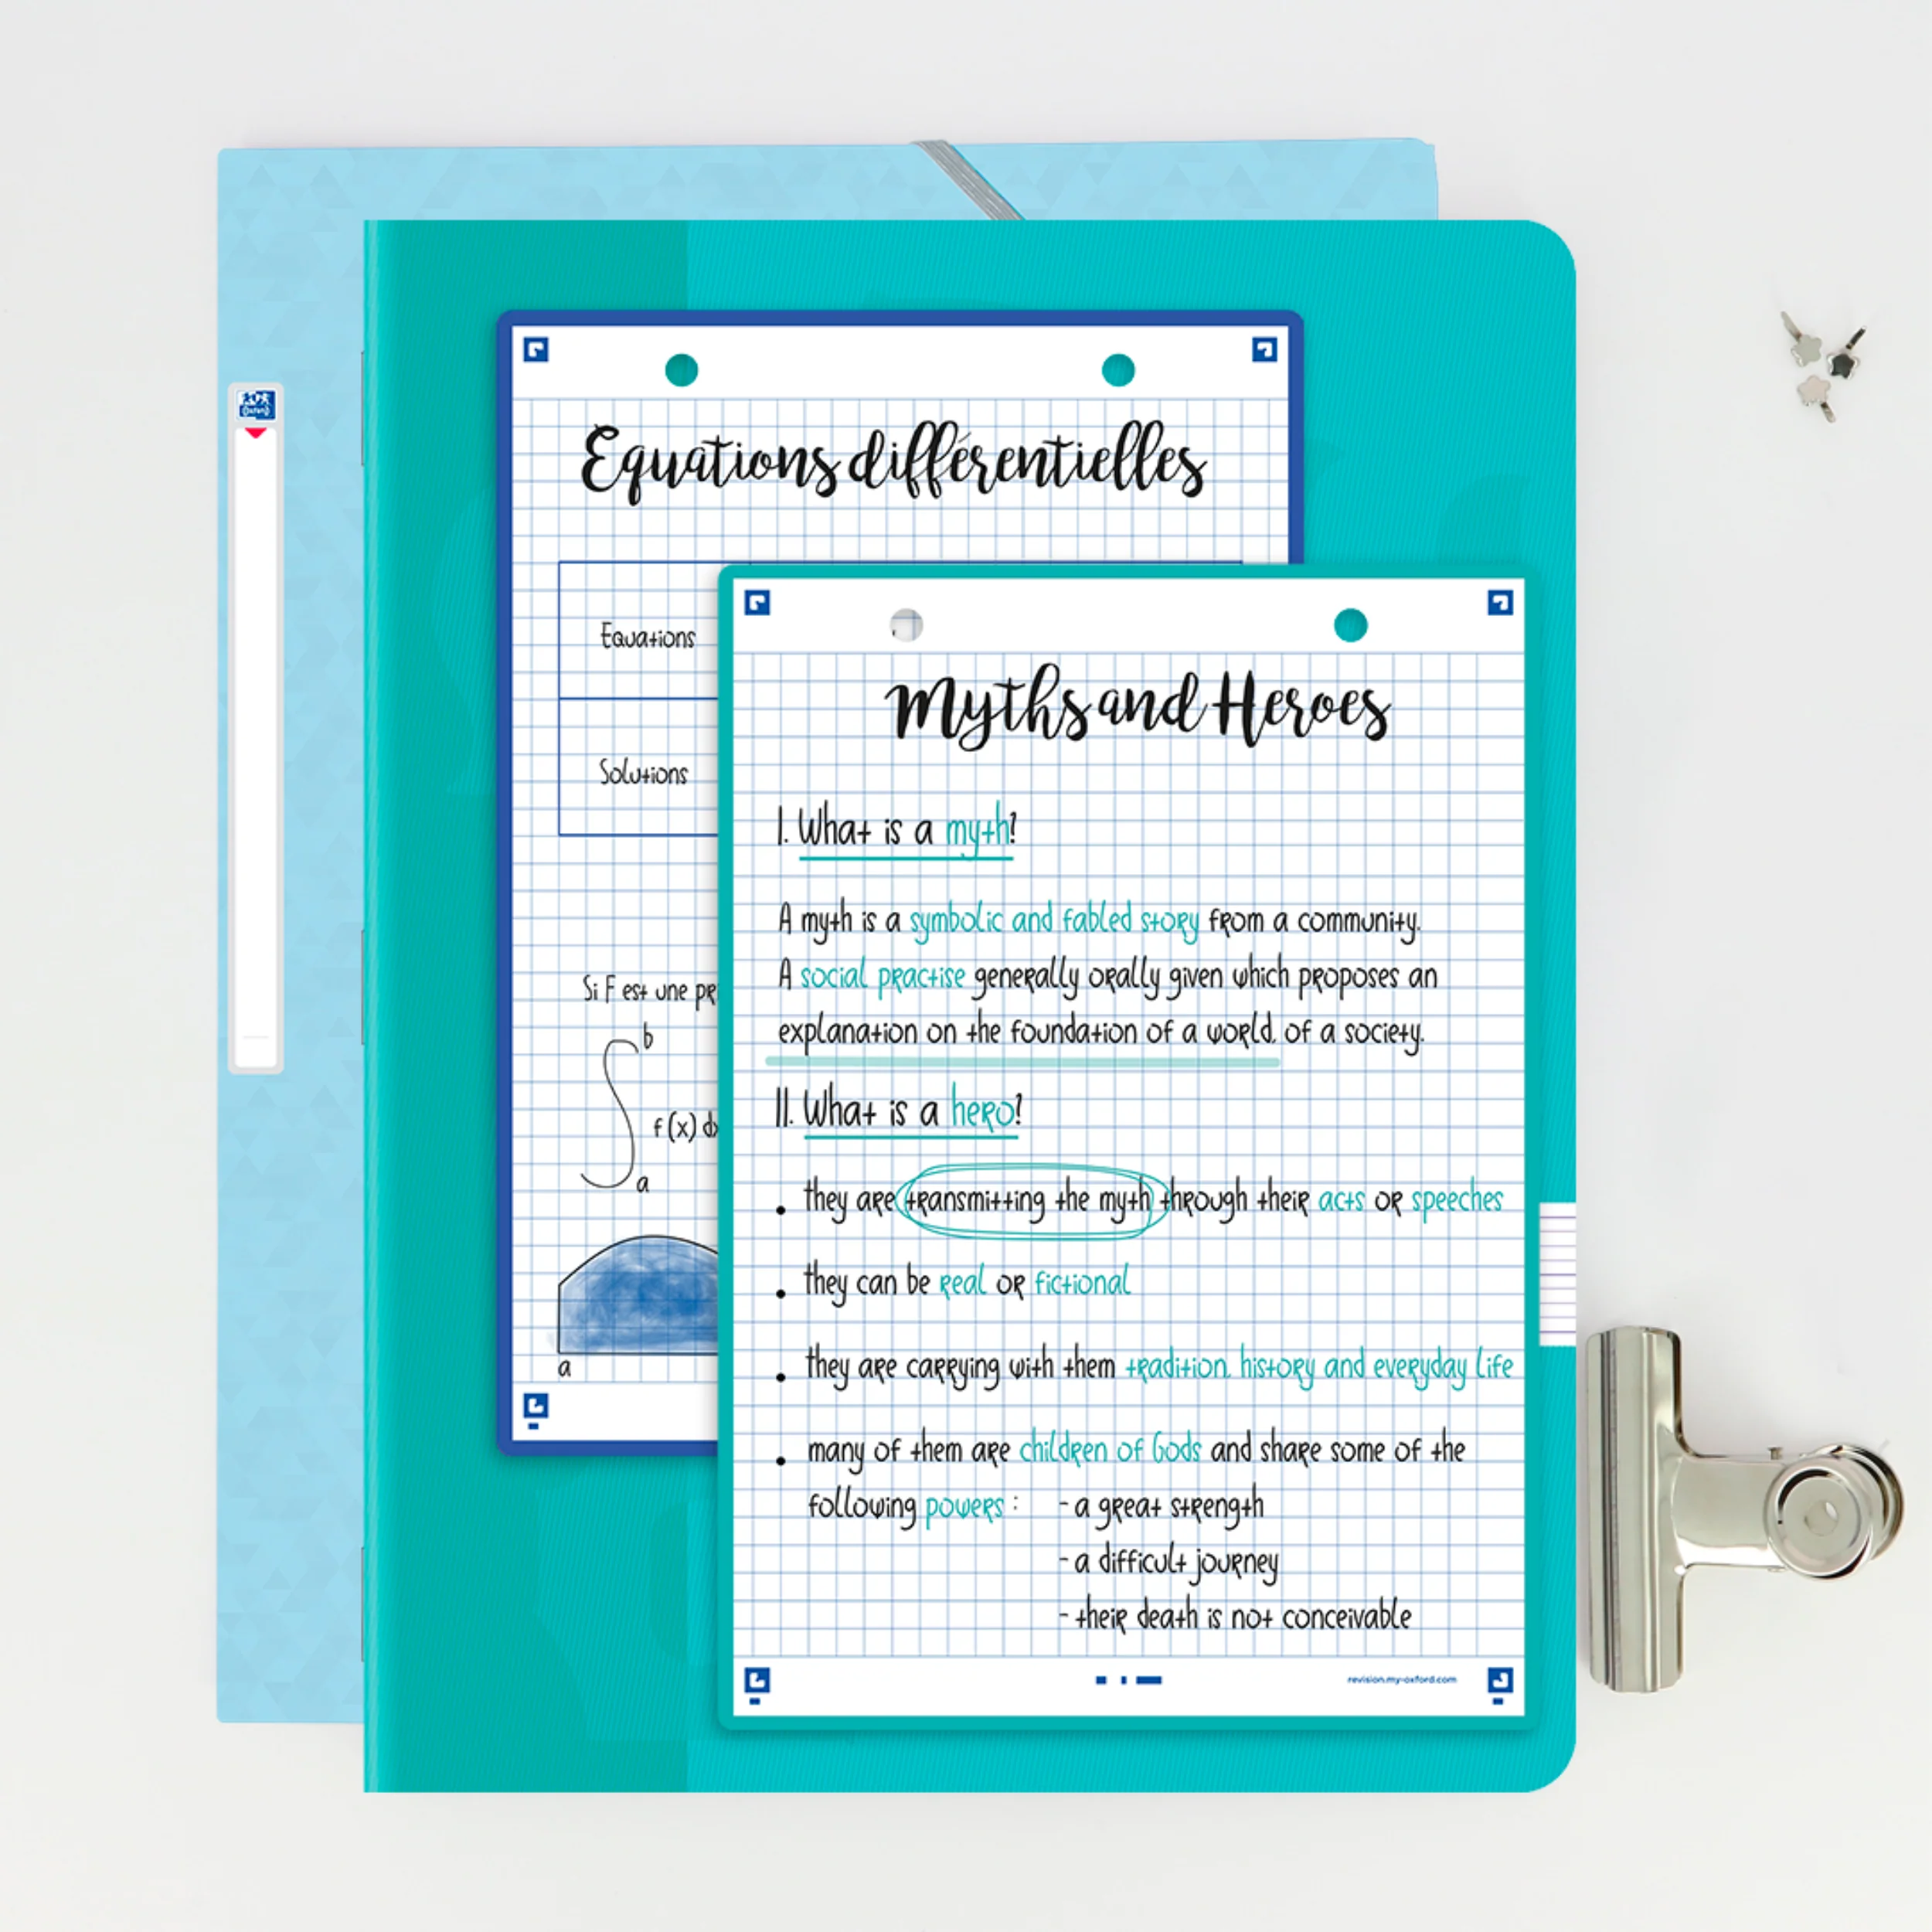 Oxford
Equations différentielles
Equations
Solutions
Si F est une
b
f(x)
a
a
Myths and Heroes
I. What is a myth?
A myth is a symbolic and fabled story from a community.
A social practise generally orally given which proposes an
explanation on the foundation of a world, of a society.
II. What is a hero?
• they are transmitting the myth through their acts or speeches
• they can be real or fictional
• they are carrying with them tradition, history and everyday life
• many of them are children of Gods and share some of the
following powers : - a great strength
- a difficult journey
- their death is not conceivable
revision.my-oxford.com